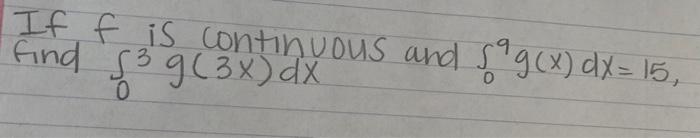 If f is continuous and ∫₀⁹ g(x) dx = 15,
find ∫₀³ g(3x) dx